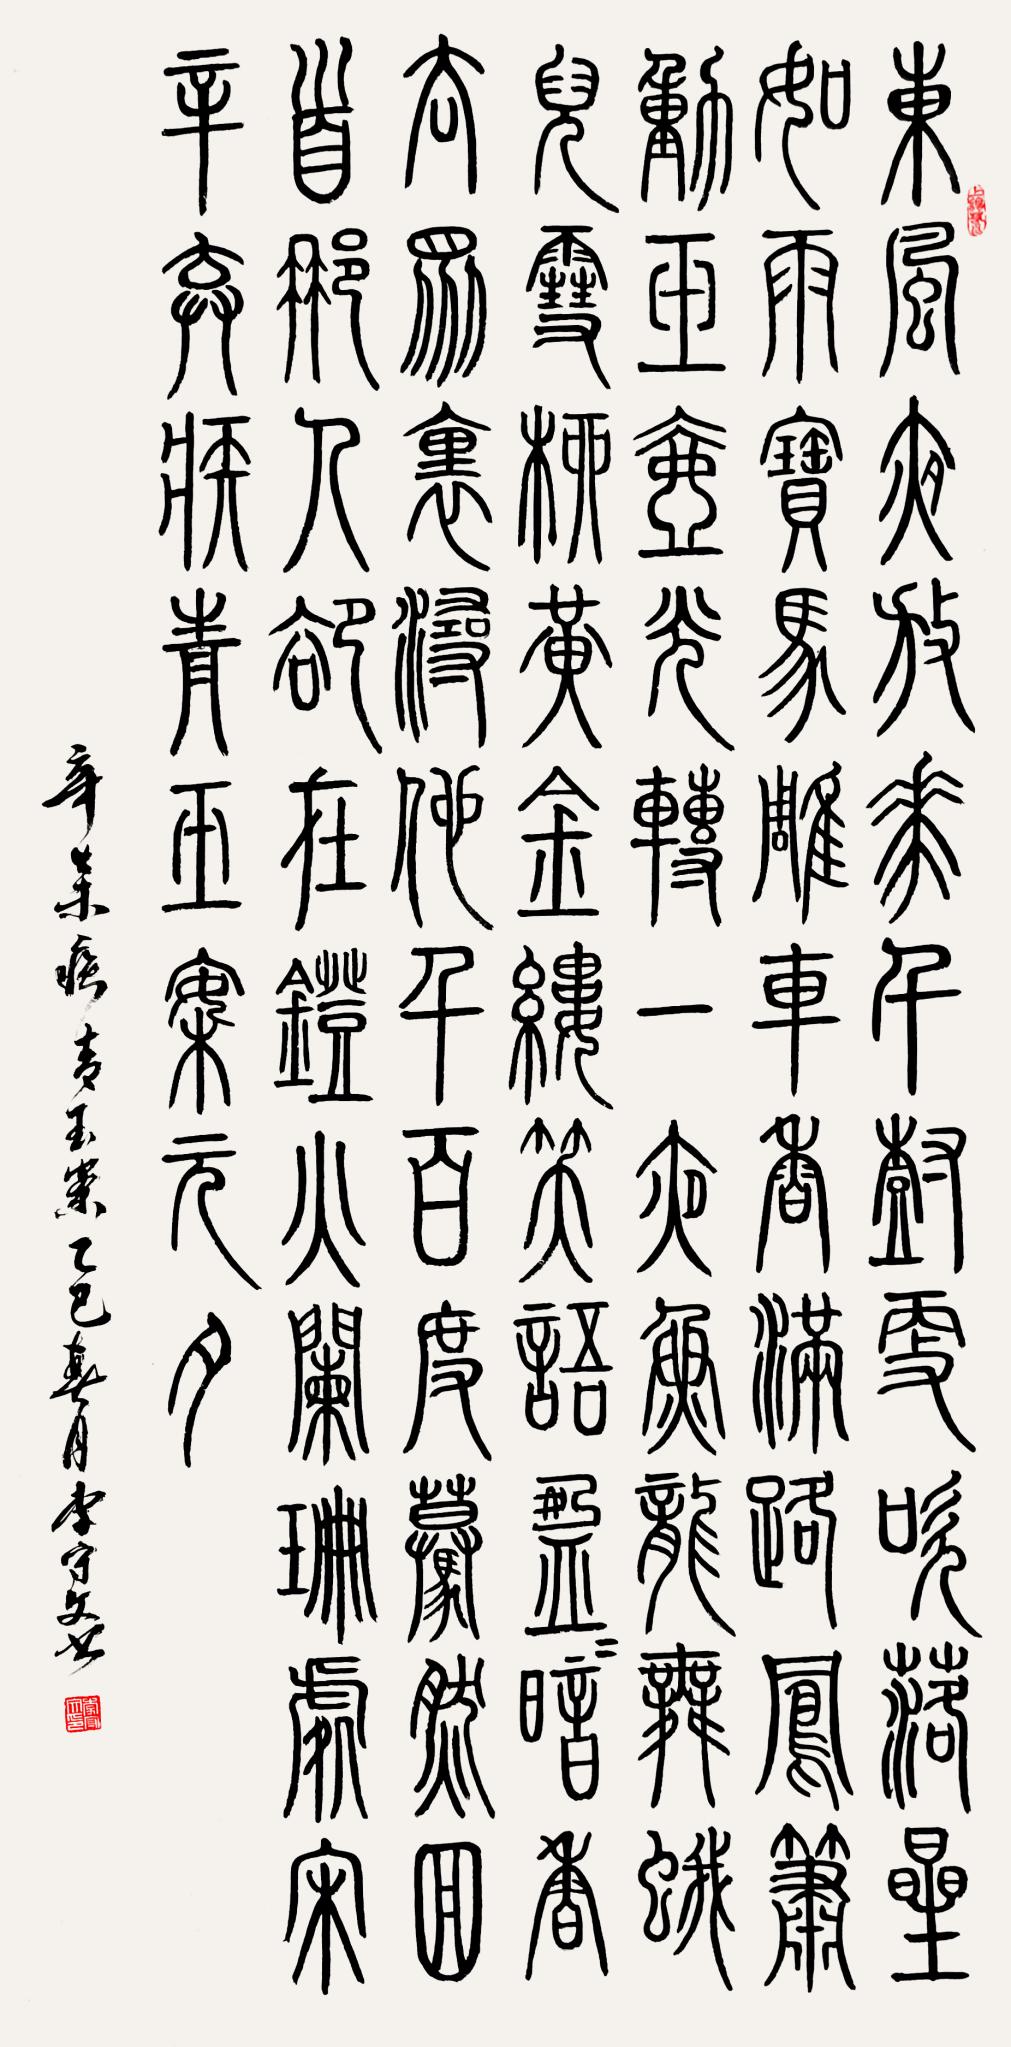 東風夜放華千樹更吹落星
如雨寶馬雕車香滿路鳳簫
動玉壺光轉一夜魚龍舞蛾
兒雪柳黃金縷笑語盈〻暗香
去眾裏尋他千百度驀然回
首那人卻在鐙火闌珊處宋
辛棄疾青玉案元夕
辛棄疾青玉案乙巳春月李守文書